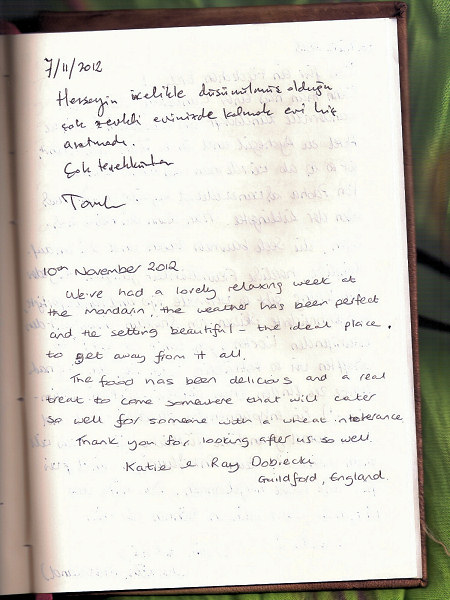 7/11/2012
Herşeyin incelikle düşünülmüş olduğu
çok zevkli evinizde kalmak evi hiç
aratmadı.
Çok teşekkürler
10th November 2012
We've had a lovely relaxing week at
the mandarin, the weather has been perfect
and the setting beautiful - the ideal place
to get away from it all.
The food has been delicious and a real
treat to come somewhere that will cater
so well for someone with a wheat intolerance
Thank you for looking after us so well
Katie & Ray Dobiecki
Guildford, England.